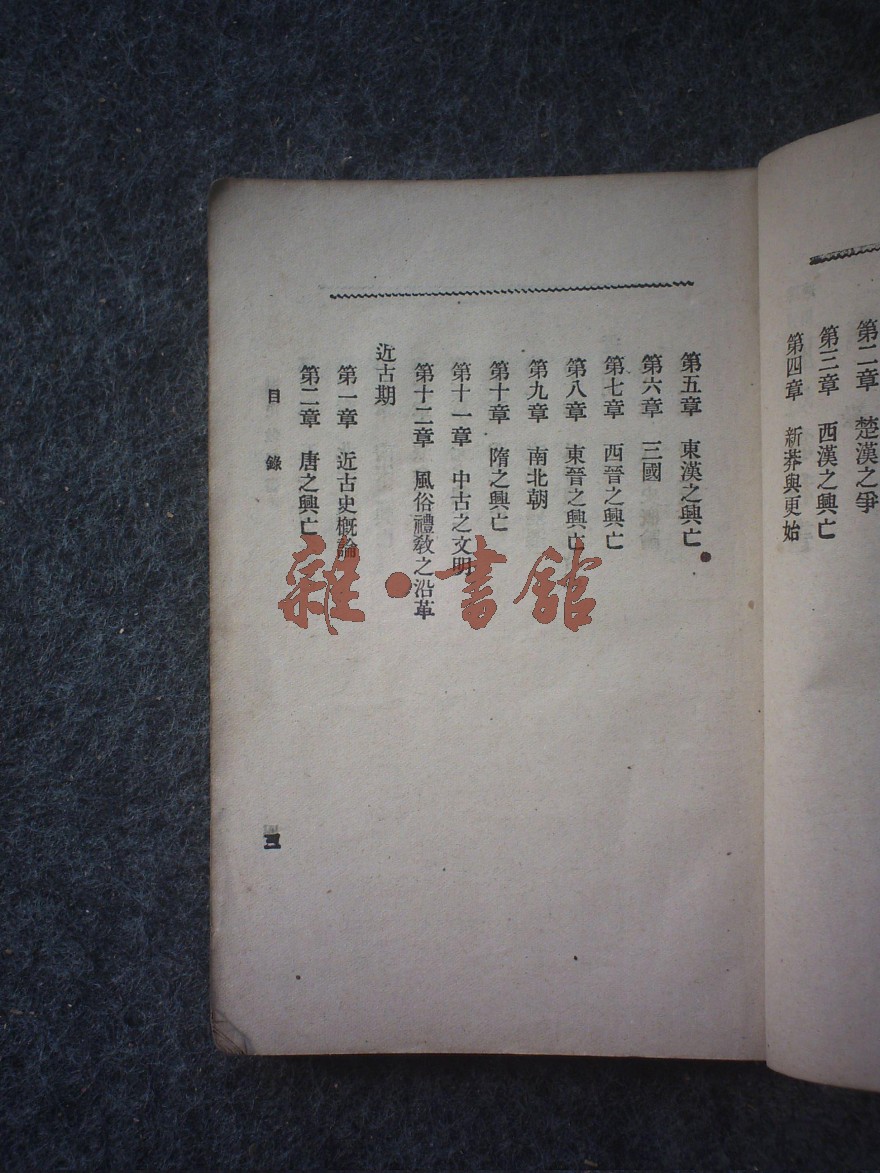 第二章　楚漢之爭
第三章　西漢之興亡
第四章　新莽與更始
第五章　東漢之興亡
第六章　三國
第七章　西晉之興亡
第八章　東晉之興亡
第九章　南北朝
第十章　隋之興亡
第十一章　中古之文明
第十二章　風俗禮教之沿革
近古期
第一章　近古史概論
第二章　唐之興亡
目錄
三
雜·書館